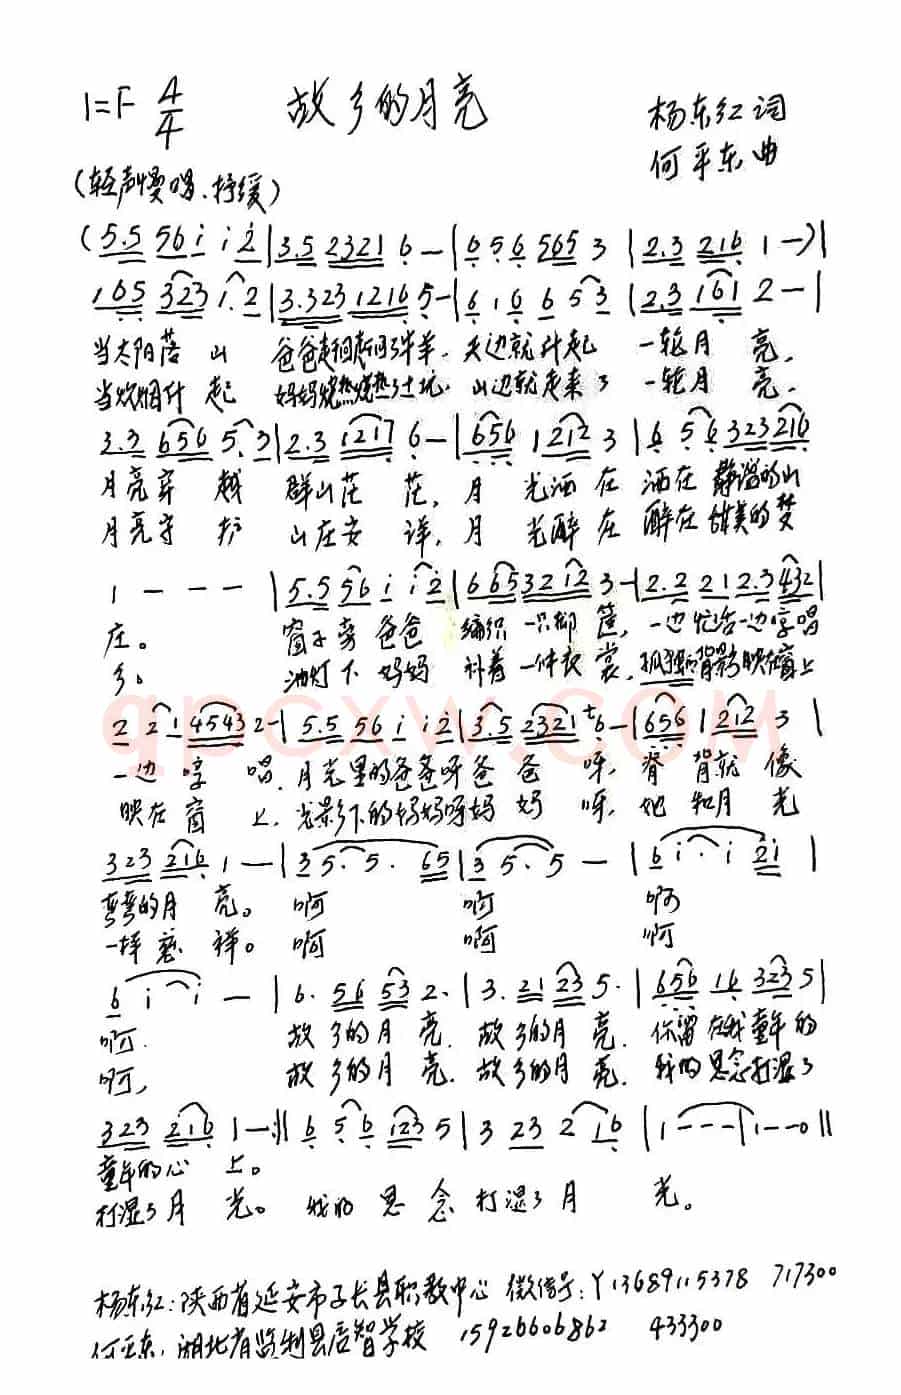 1=F 4/4 故乡的月亮 杨东红 词
何平东 曲
(轻声慢唱、抒缓)
(5.5 56 i i 2 | 3.5 2321 6 – | 6 5 6 565 3 | 2.3 216 1 –) |
165 323 1. 2 | 3.323 1216 5 – | 6 16 6 5 3 | 2.3 161 2 – |
当太阳落 山 爸爸赶回赶回了羊羊,天边就升起 一轮月 亮,
当炊烟升 起 妈妈烧热烧热了土炕,山边就走来了 一轮月 亮,
3.3 656 5. 3 | 2.3 1217 6 – | 656 1 212 3 | 6 5 6 323 216
月亮穿 越 群山茫 茫,月 光洒 在 洒在 静谧的山
月亮守 护 山庄安 详,月 光醉 在 醉在 甜美的梦
1 – – – | 5.5 56 i i 2 | 6 65 32 12 3 – | 2.2 21 2.3 432 |
庄。 窗子旁 爸爸 编织 一只柳 筐,一边忙活一边哼唱
乡。 油灯下 妈妈 补着 一件衣 裳,孤独的背影映在窗上
2 2 1 4543 2 – | 5.5 56 i i 2 | 3.5 2321 6 – | 656 1 212 3 |
一边 哼 唱,月光里的爸爸呀爸 爸 呀,脊 背就 像
映在 窗 上,光影下的妈妈呀妈 妈 呀,她 和月 光
323 216 1 – | 3 5. 5. 65 | 3 5. 5 – | 6 i. i 2i |
弯弯的月 亮。 啊 啊 啊
一样慈 祥。 啊 啊 啊
6 i i i – | 6. 56 53 2. | 3. 21 23 5. | 656 16 323 5 |
啊. 故乡的月 亮. 故乡的月 亮. 你留在我童年的
啊, 故乡的月 亮. 故乡的月 亮. 我的思念打湿了
323 216 1 – :|| 6 5 6 123 5 | 3 23 2 16 | 1 – – – | 1 – – 0 ||
童年的心 上。
打湿了月 光。 我的 思 念 打湿了月 光。
杨东红:陕西省延安市子长县职教中心 微信号:Y13689115378 717300
何平东:湖北省监利县启智学校 15926606862 433300
qpcxw.com